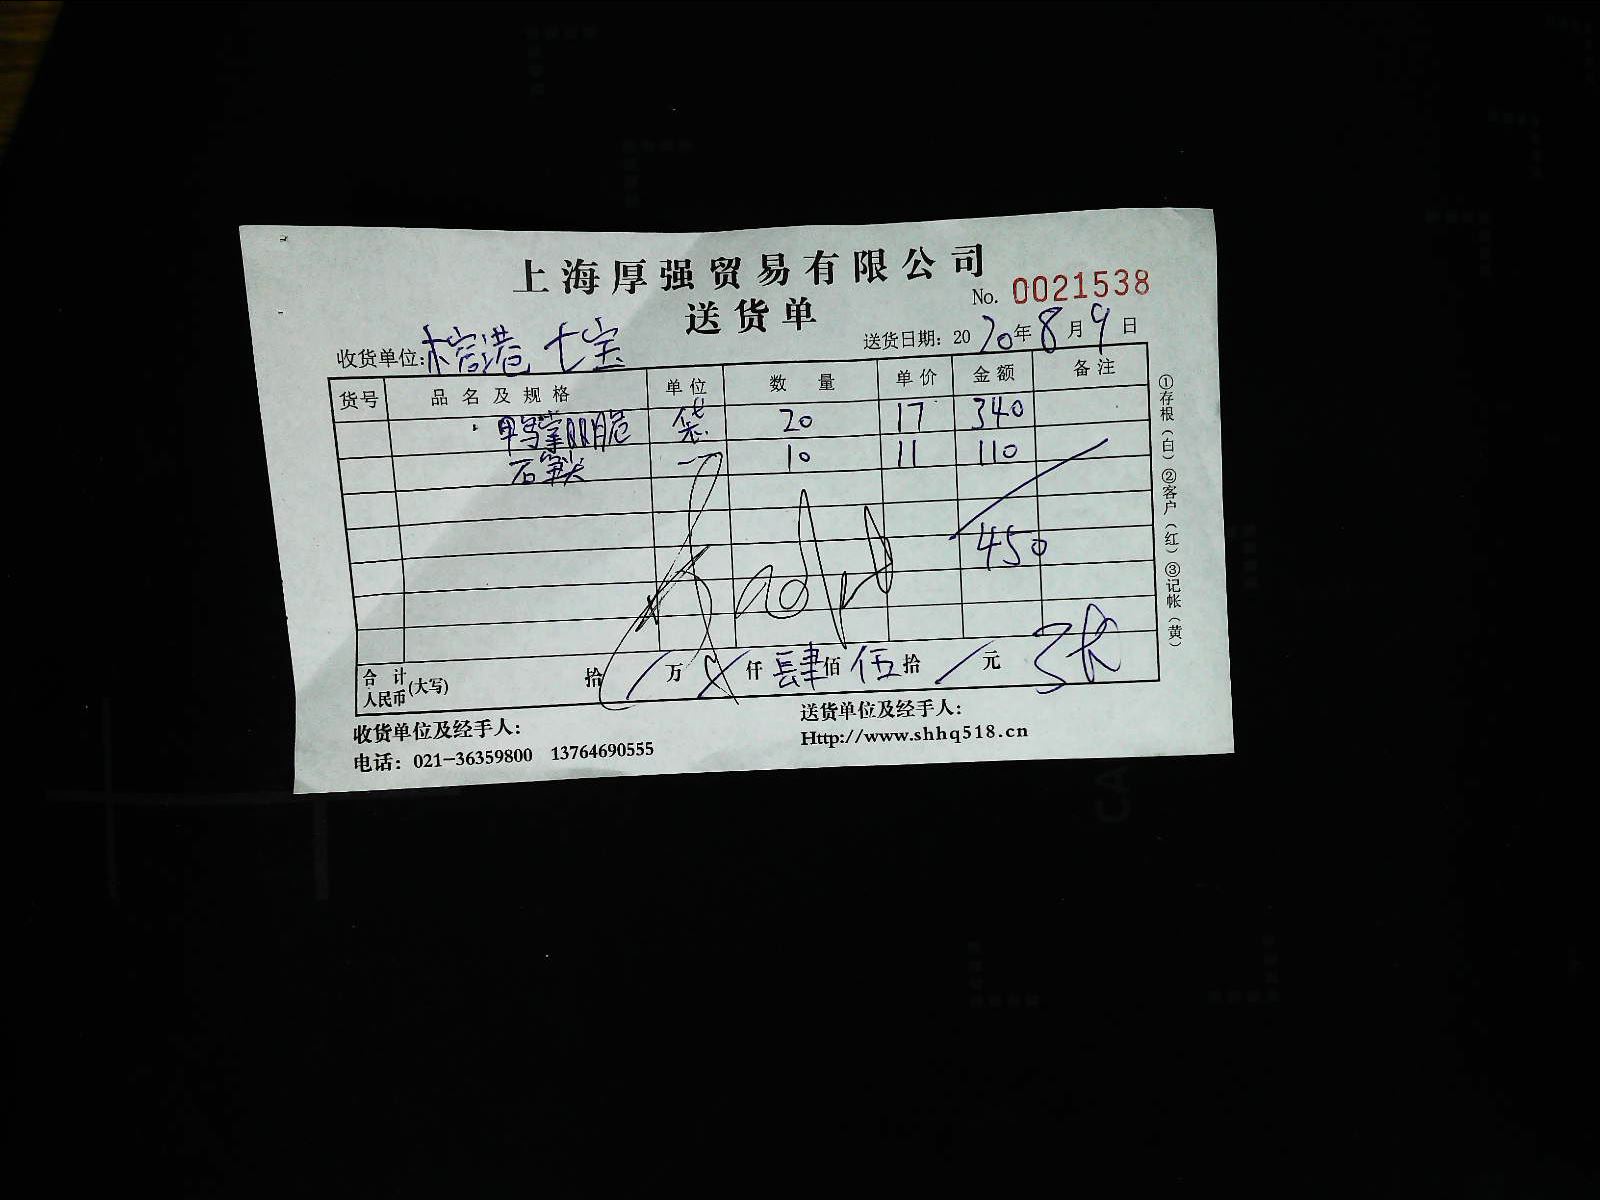 上海厚强贸易有限公司
送货单
No. 0021538
收货单位: 榕港 七宝
送货日期: 2020年8月9日
货号 品名及规格 单位 数量 单价 金额 备注
鸭掌 脆 袋 20 17 340
石 10 11 110
450
合计人民币(大写) 拾 / 万 仟 肆佰 伍拾 / 元
收货单位及经手人:
送货单位及经手人:
电话: 021-36359800 13764690555
Http://www.shhq518.cn
①存根(白) ②客户(红) ③记帐(黄)